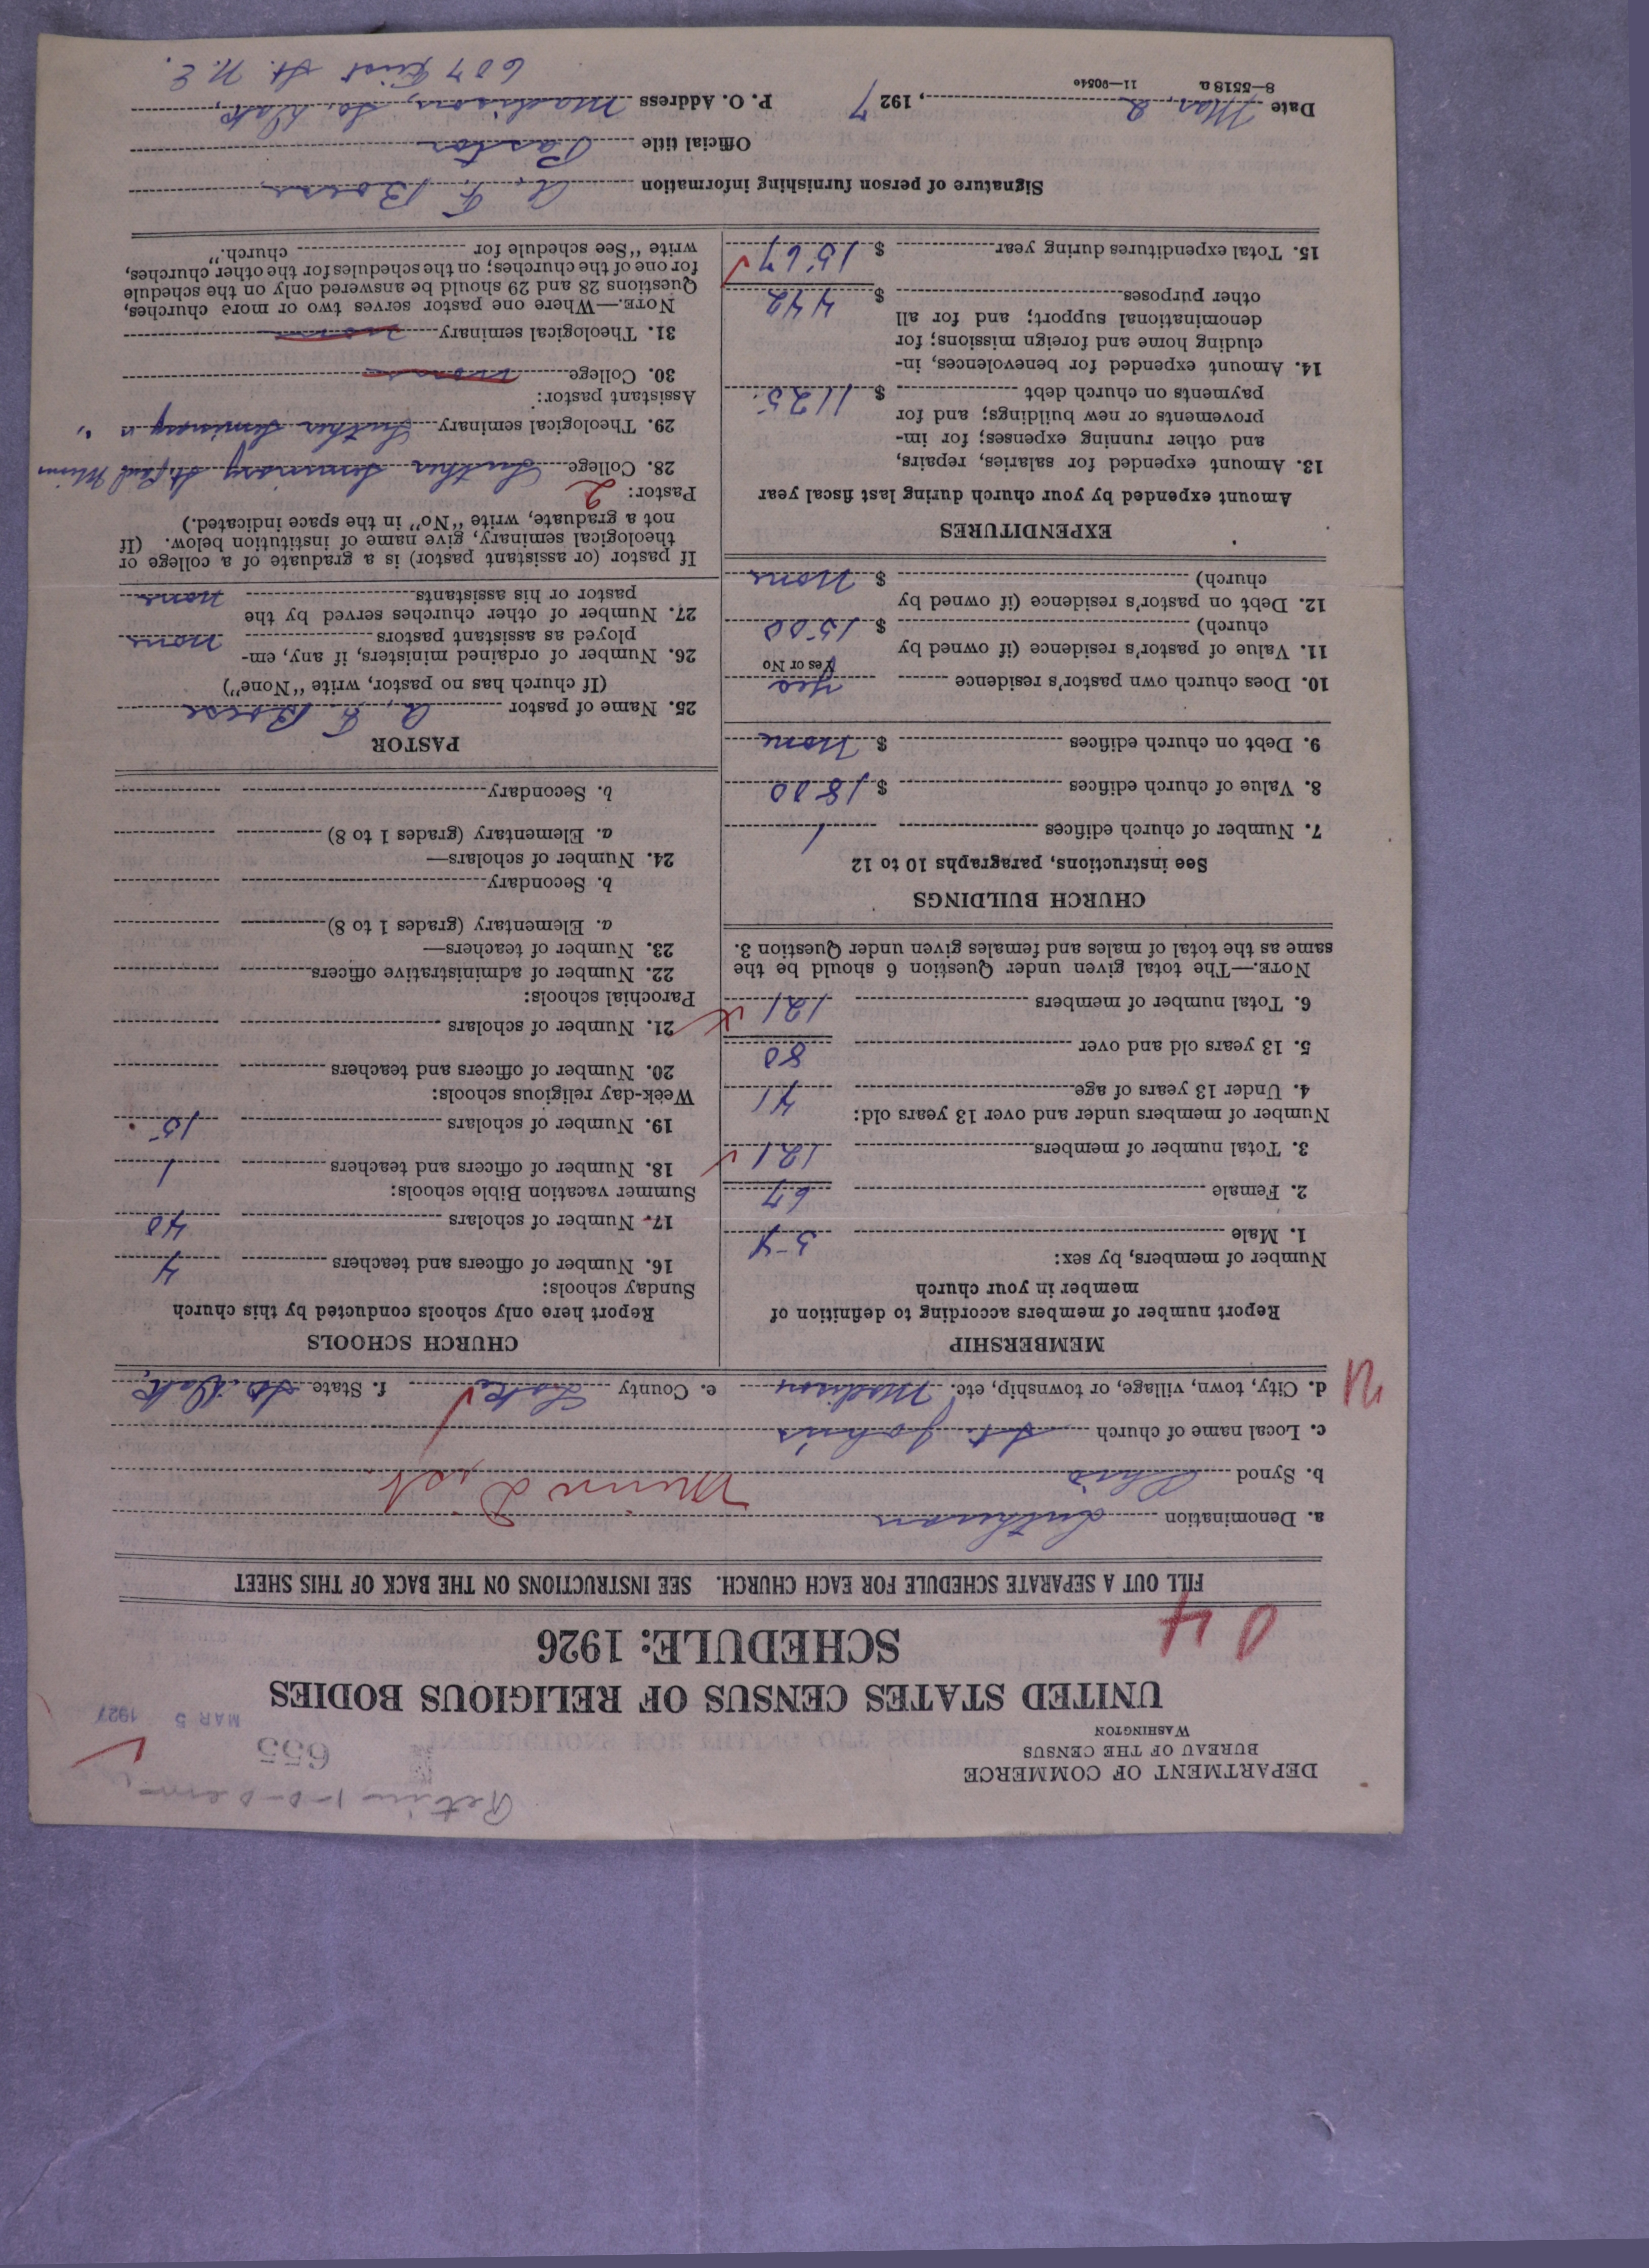 DEPARTMENT OF COMMERCE
BUREAU OF THE CENSUS
WASHINGTON
655
MAR 5 1927
UNITED STATES CENSUS OF RELIGIOUS BODIES
SCHEDULE: 1926
04
FILL OUT A SEPARATE SCHEDULE FOR EACH CHURCH. SEE INSTRUCTIONS ON THE BACK OF THIS SHEET
a. Denomination Lutheran
b. Synod Ohio Minn Dist.
c. Local name of church St. John's
d. City, town, village, or township, etc. Madison e. County Lake f. State So. Dak.
MEMBERSHIP
Report number of members according to definition of
member in your church
Number of members, by sex:
1. Male 54
2. Female 67
3. Total number of members 121
Number of members under and over 13 years old:
4. Under 13 years of age 41
5. 13 years old and over 80
6. Total number of members 121
NOTE.—The total given under Question 6 should be the
same as the total of males and females given under Question 3.
CHURCH BUILDINGS
See instructions, paragraphs 10 to 12
7. Number of church edifices 1
8. Value of church edifices $ 1800
9. Debt on church edifices $ None
10. Does church own pastor's residence Yes
Yes or No
11. Value of pastor's residence (if owned by
church) $ 1500
12. Debt on pastor's residence (if owned by
church) $ None
EXPENDITURES
Amount expended by your church during last fiscal year
13. Amount expended for salaries, repairs,
and other running expenses; for im-
provements or new buildings; and for
payments on church debt $ 1125.
14. Amount expended for benevolences, in-
cluding home and foreign missions; for
denominational support; and for all
other purposes $ 442
15. Total expenditures during year $ 1567
CHURCH SCHOOLS
Report here only schools conducted by this church
Sunday schools:
16. Number of officers and teachers 4
17. Number of scholars 40
Summer vacation Bible schools:
18. Number of officers and teachers 1
19. Number of scholars 15
Week-day religious schools:
20. Number of officers and teachers
21. Number of scholars
Parochial schools:
22. Number of administrative officers
23. Number of teachers—
a. Elementary (grades 1 to 8)
b. Secondary
24. Number of scholars—
a. Elementary (grades 1 to 8)
b. Secondary
PASTOR
25. Name of pastor A. F. Boese
(If church has no pastor, write "None")
26. Number of ordained ministers, if any, em-
ployed as assistant pastors none
27. Number of other churches served by the
pastor or his assistants none
If pastor (or assistant pastor) is a graduate of a college or
theological seminary, give name of institution below. (If
not a graduate, write "No" in the space indicated.)
Pastor: 2
28. College Luther Seminary St. Paul Minn
29. Theological seminary Luther Seminary " "
Assistant pastor:
30. College none
31. Theological seminary none
NOTE.—Where one pastor serves two or more churches,
Questions 28 and 29 should be answered only on the schedule
for one of the churches; on the schedules for the other churches,
write "See schedule for church."
Signature of person furnishing information A. F. Boese
Official title Pastor
Date Mar. 2, 1927 P. O. Address Madison, So. Dak.
8—5518 a 11—9054e
607 First St. N. E.